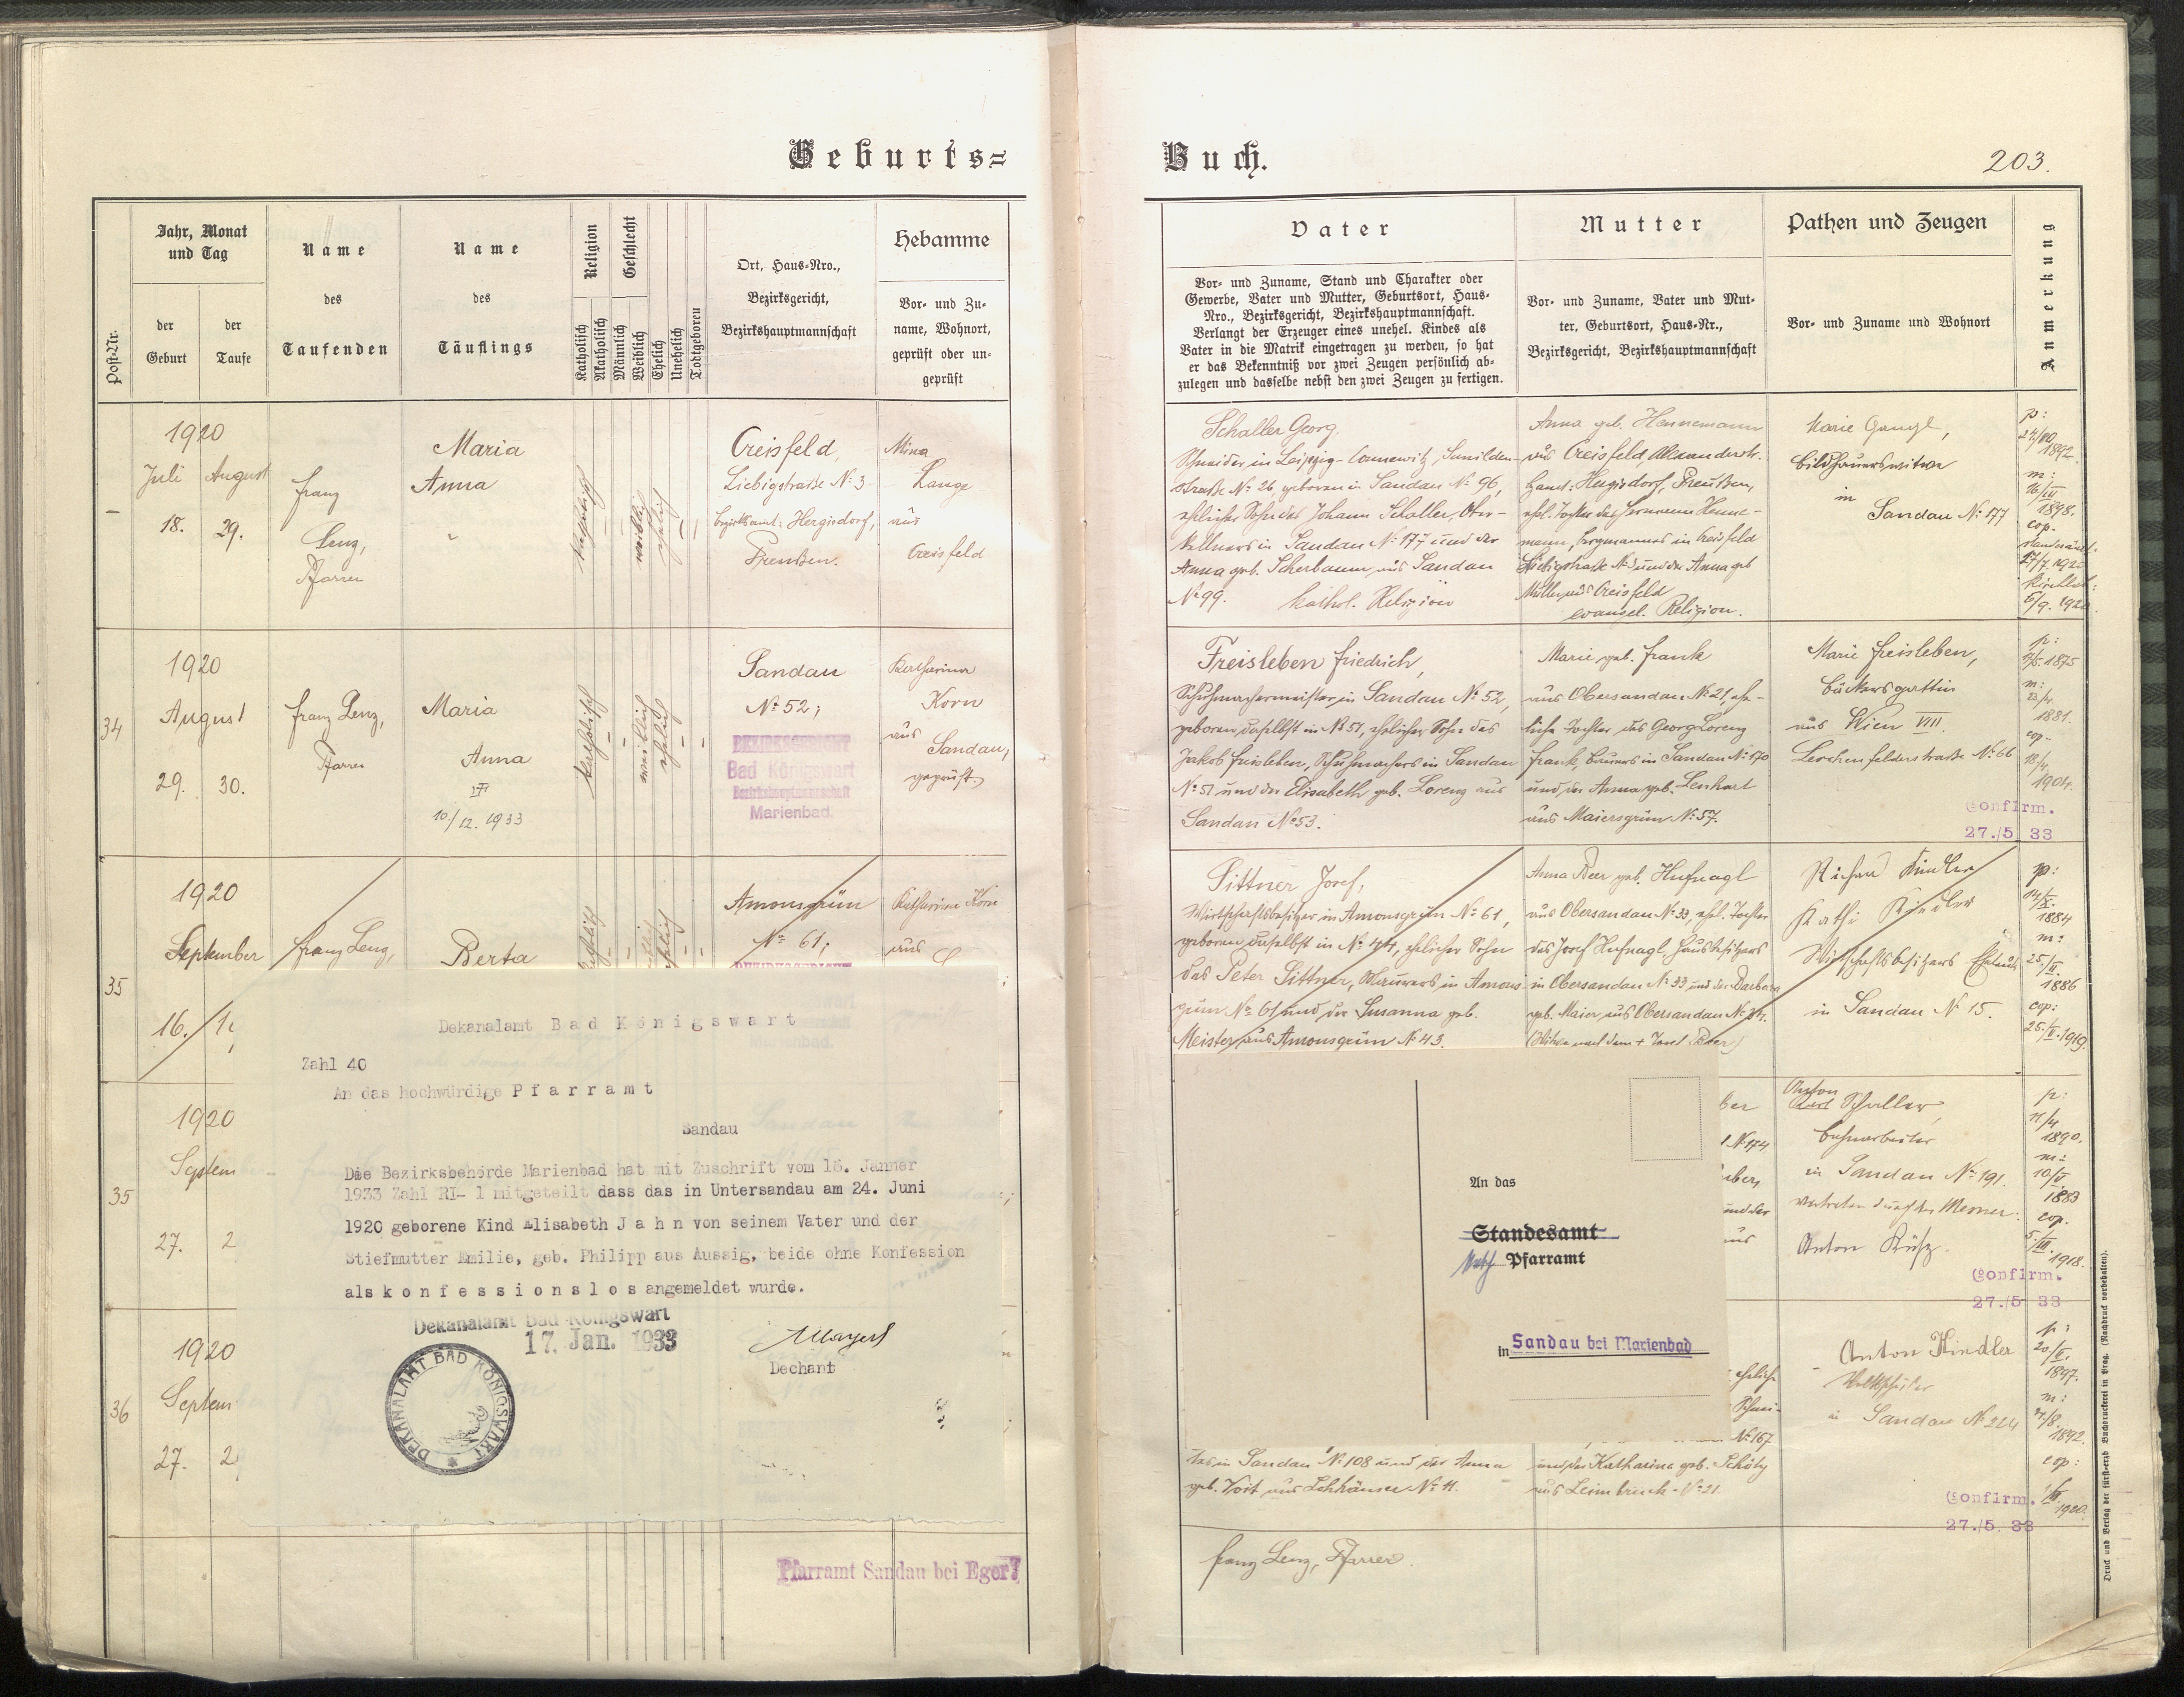 Geburts=
Buch.
203.
Post-Nr.
Jahr, Monat
und Tag
der
Geburt
der
Taufe
Name
des
Taufenden
Name
des
Täuflings
Religion
Katholisch
Akatholisch
Geschlecht
Männlich
Weiblich
Ehelich
Unehelich
Todtgeboren
Ort, Haus=Nro.,
Bezirksgericht,
Bezirkshauptmannschaft
Hebamme
Vor= und Zu=
name, Wohnort,
geprüft oder un=
geprüft
Vater
Vor= und Zuname, Stand und Charakter oder
Gewerbe, Vater und Mutter, Geburtsort, Haus=
Nro., Bezirksgericht, Bezirkshauptmannschaft.
Verlangt der Erzeuger eines unehel. Kindes als
Vater in die Matrik eingetragen zu werden, so hat
er das Bekenntniß vor zwei Zeugen persönlich ab=
zulegen und dasselbe nebst den zwei Zeugen zu fertigen.
Mutter
Vor= und Zuname, Vater und Mut=
ter, Geburtsort, Haus=Nr.,
Bezirksgericht, Bezirkshauptmannschaft
Pathen und Zeugen
Vor= und Zuname und Wohnort
Anmerkung
1920
Juli August
18. 29.
Franz
Lenz,
Pfarrer
Maria
Anna
katholisch
weiblich
ehelich
Creisfeld,
Liebigstraße № 3
Hergisdorf,
Preußen.
Mina
Lange
aus
Creisfeld
Schaller Georg,
Schneider in Leipzig-Connewitz,
Straße № 26, geboren in Sandau № 96,
ehelicher Sohn des Johann Schaller, Ober-
kellners in Sandau № 177 und der
Anna geb. Scherbaum aus Sandau
№ 99. kathol. Religion
Anna geb. Hennemann
aus Creisfeld,
Hergisdorf, Preußen,
ehel. Tochter des Hermann Henne-
mann, Bergmannes in Creisfeld
Liebigstraße № 3 und der Anna geb
Müller aus Creisfeld
evangel. Religion.
Marie Gangl,
Bildhauerswitwe
in
Sandau № 177
p:
1892.
m:
1898.
cop.
34
1920
August
29. 30.
Franz Lenz,
Pfarrer
Maria
Anna
10./12. 1933
katholisch
weiblich
ehelich
Sandau
№ 52;
BEZIRKSGERICHT
Bad Königswart
Bezirkshauptmannschaft
Marienbad.
Katharina
Korn
aus
Sandau,
geprüft.
Freisleben Friedrich,
Schuhmachermeister in Sandau № 52,
geboren daselbst in № 51, ehelicher Sohn des
Jakob Freisleben, Schuhmachers in Sandau
№ 51 und der Elisabeth geb. Lorenz aus
Sandau № 53.
Marie geb. Frank
aus Obersandau № 21, ehe-
liche Tochter des Georg Lorenz
Frank, Bauers in Sandau № 170
und der Anna geb. Lenhart
aus Maiersgrün № 57.
Marie Freisleben,
Bäckersgattin
aus Wien VIII.
Lerchenfelderstraße № 66
p:
1875
m:
1881.
cop.
18/4
1904.
Confirm.
27./5 33
35
1920
September
16.
Franz Lenz,
Berta
Amonsgrün
№ 61;
Katharina Korn
aus
Pittner Josef,
Wirtschaftsbesitzer in Amonsgrün № 61,
geboren daselbst in № 44, ehelicher Sohn
des Peter Pittner, in Amons-
grün № 61 und der Susanna geb.
Meister aus Amonsgrün № 43.
Anna Beer geb. Hufnagl
aus Obersandau № 33, ehel. Tochter
des Josef Hufnagl, Hausbesitzers
in Obersandau № 33 und der Barbara
geb. Maier aus Obersandau
Richard Kindler
Kathi Kindler
Wirtschaftsbesitzers
in Sandau № 15.
p:
1884
m:
25./II.
1886
cop:
25./II. 1919.
Dekanalamt Bad Königswart
Zahl 40
An das hochwürdige Pfarramt
Sandau
Die Bezirksbehörde Marienbad hat mit Zuschrift vom 16. Jänner
1933 Zahl RI- 1 mitgeteilt dass das in Untersandau am 24. Juni
1920 geborene Kind Elisabeth Jahn von seinem Vater und der
Stiefmutter Emilie, geb. Philipp aus Aussig, beide ohne Konfession
als konfessionslos angemeldet wurde.
Dekanalamt Bad Königswart
17. Jan. 1933
DEKANALAMT BAD KÖNIGSWART
Mayerl
Dechant
35
1920
Septem
27. 2
36
1920
Septem
27. 2
An das
Standesamt
Pfarramt
in Sandau bei Marienbad
№ 174
und der
aus
Anton
Schaller,
Bahnarbeiter
in Sandau № 191.
vertreten durch den Mesner:
Anton
p:
11/4
1890.
m:
10/V
1883
cop.
5/III.
1918.
Confirm.
27./5 33
ehelich
№ 167
in Sandau № 108 und der Anna
geb. Voit aus Lohhäuser № 11.
und der Katharina geb.
aus Leimbruck № 21.
Anton Kindler
in Sandau № 224
p:
20/V.
1897.
m:
1892.
cop:
1920.
Confirm.
27./5. 33
Franz Lenz, Pfarrer.
Pfarramt Sandau bei Eger
Druck und Verlag der fürst=erzb. Buchdruckerei in Prag. (Nachdruck vorbehalten).